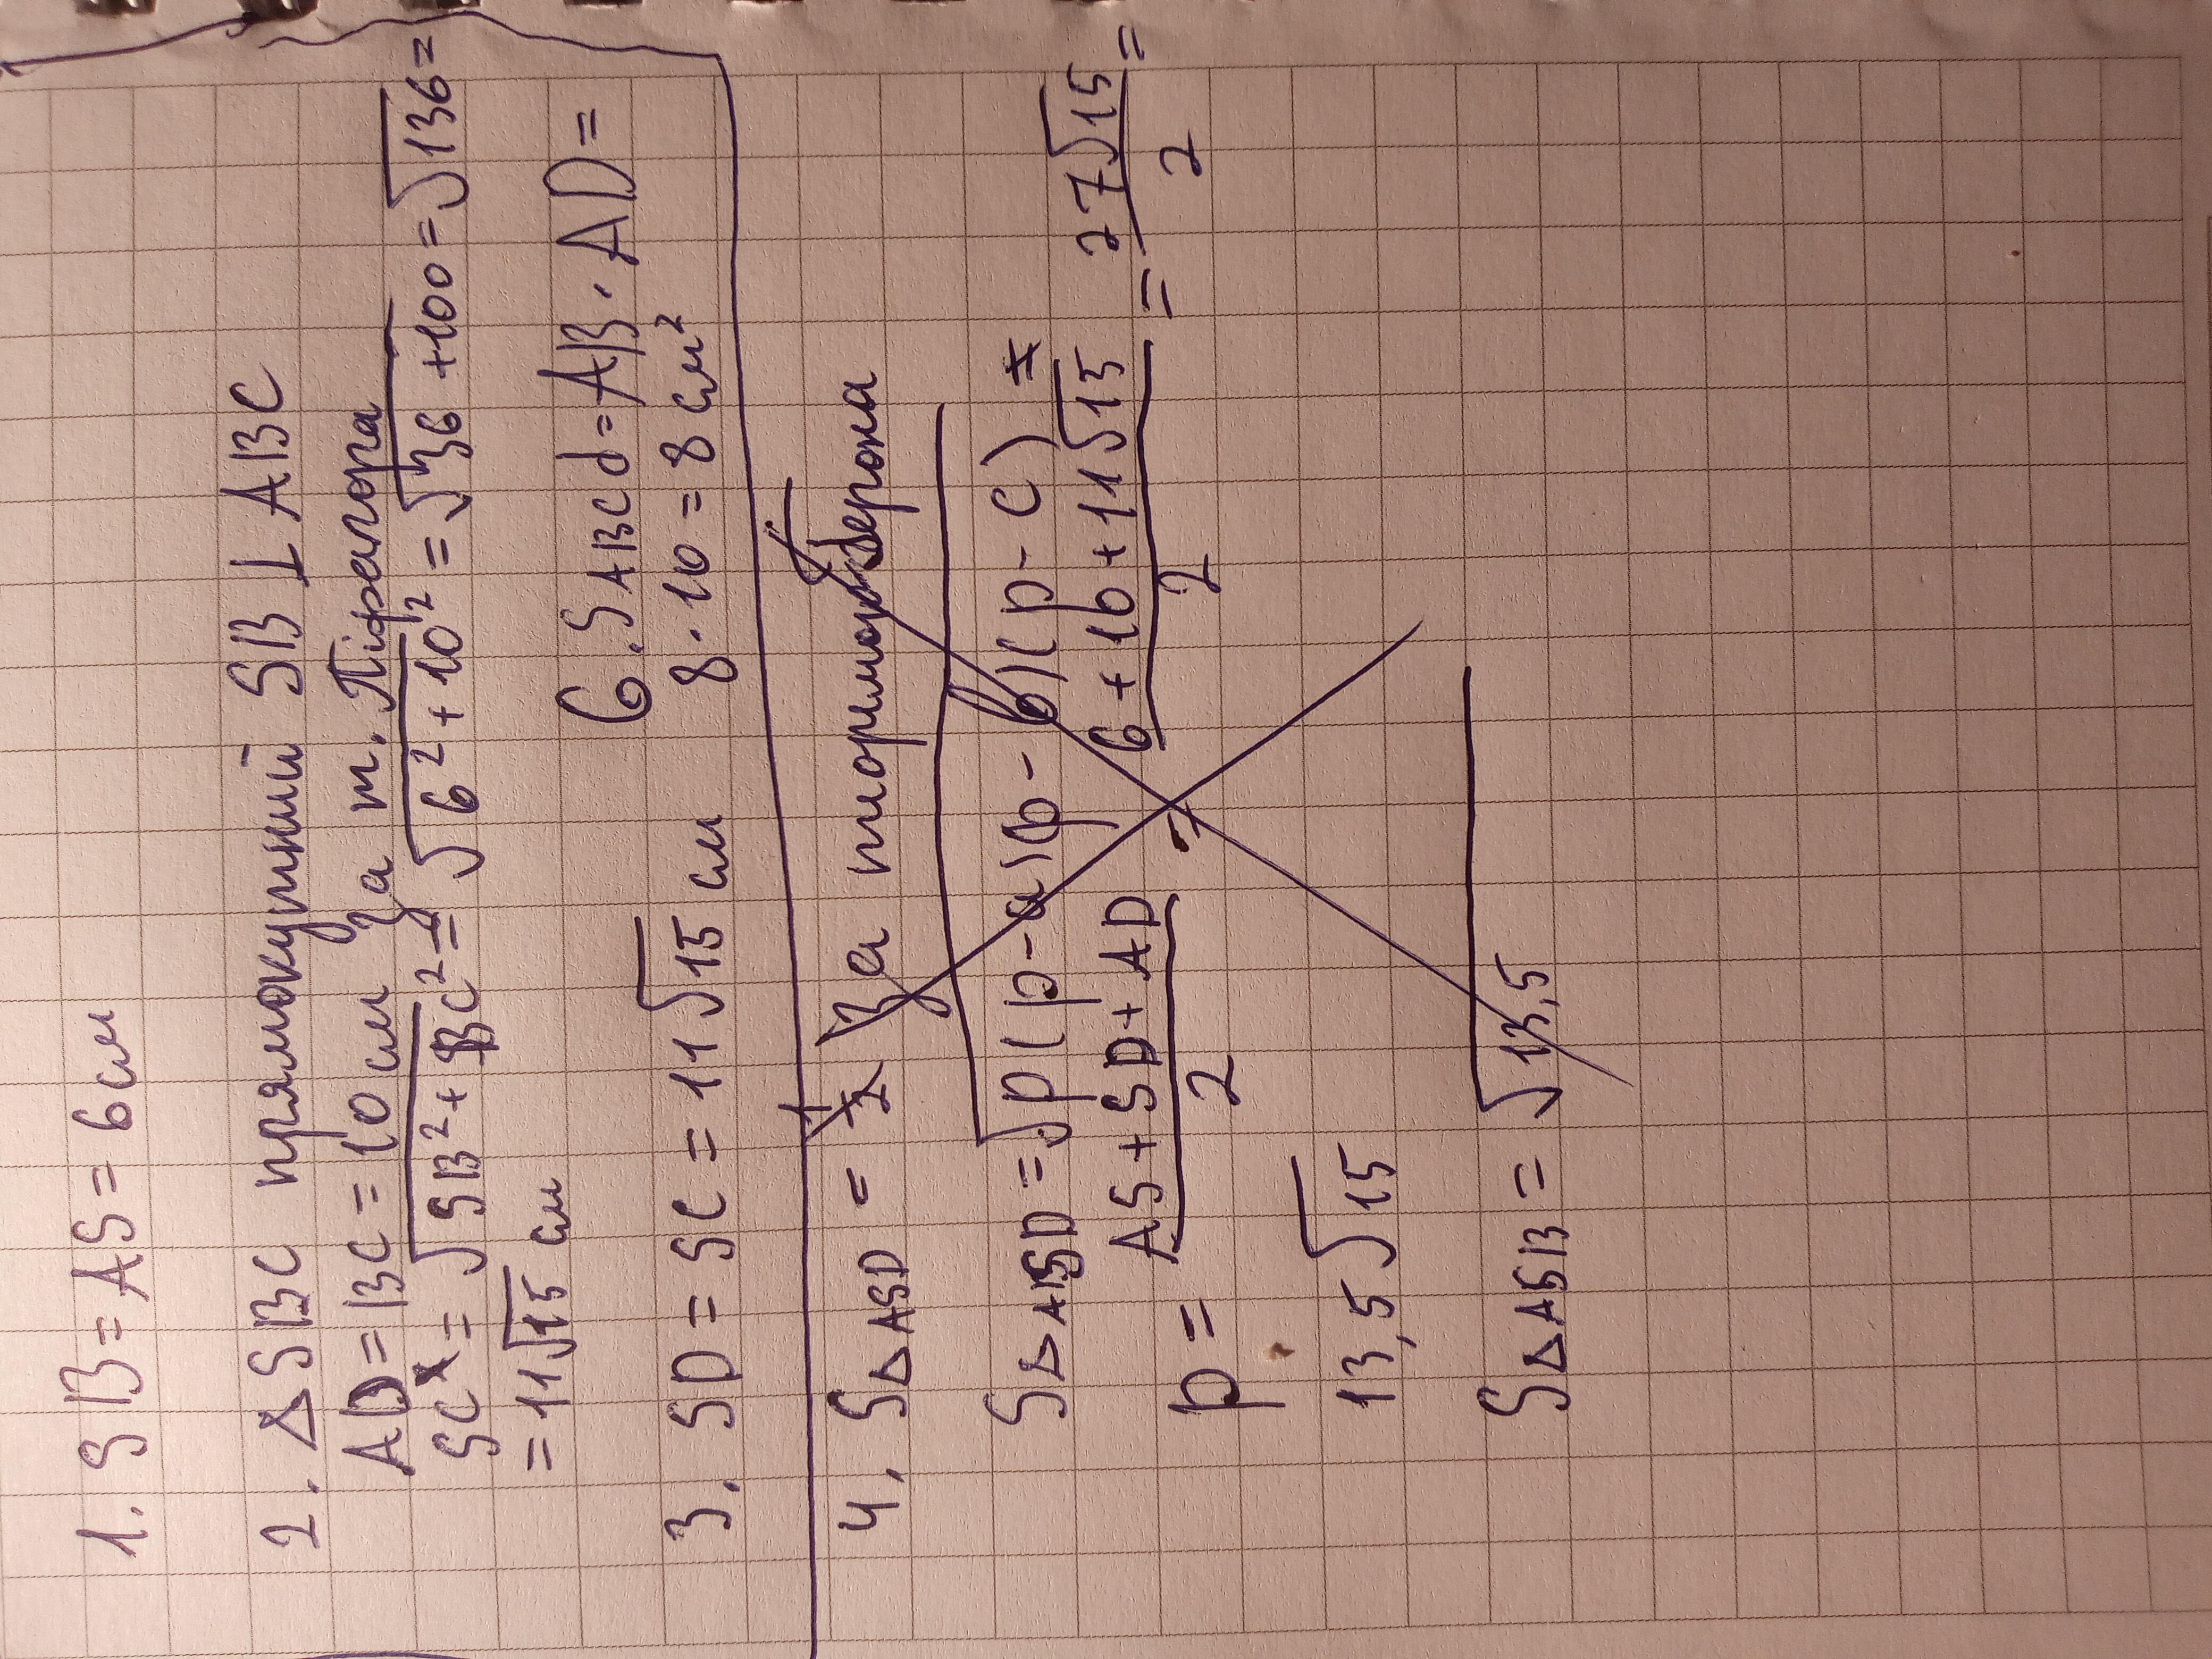 1. SB = AS = 6 см
2. ΔSBC прямокутний SB ⊥ ABC
AD = BC = 10 см За т. Піфагора
SC = √SB² + BC² = √6² + 10² = √36 + 100 = √136 =
= 11√15 см
3. SD = SC = 11√15 см
6. SABCd = AB · AD =
8 · 10 = 8 см²
4. SΔASD = За теоремою Герона
SΔASD = √p(p - a)(p - b)(p - c)
p = AS + SD + AD / 2 = 6 + 10 + 11√15 / 2 = 27√15 / 2 =
13,5√15
SΔASB = √13,5